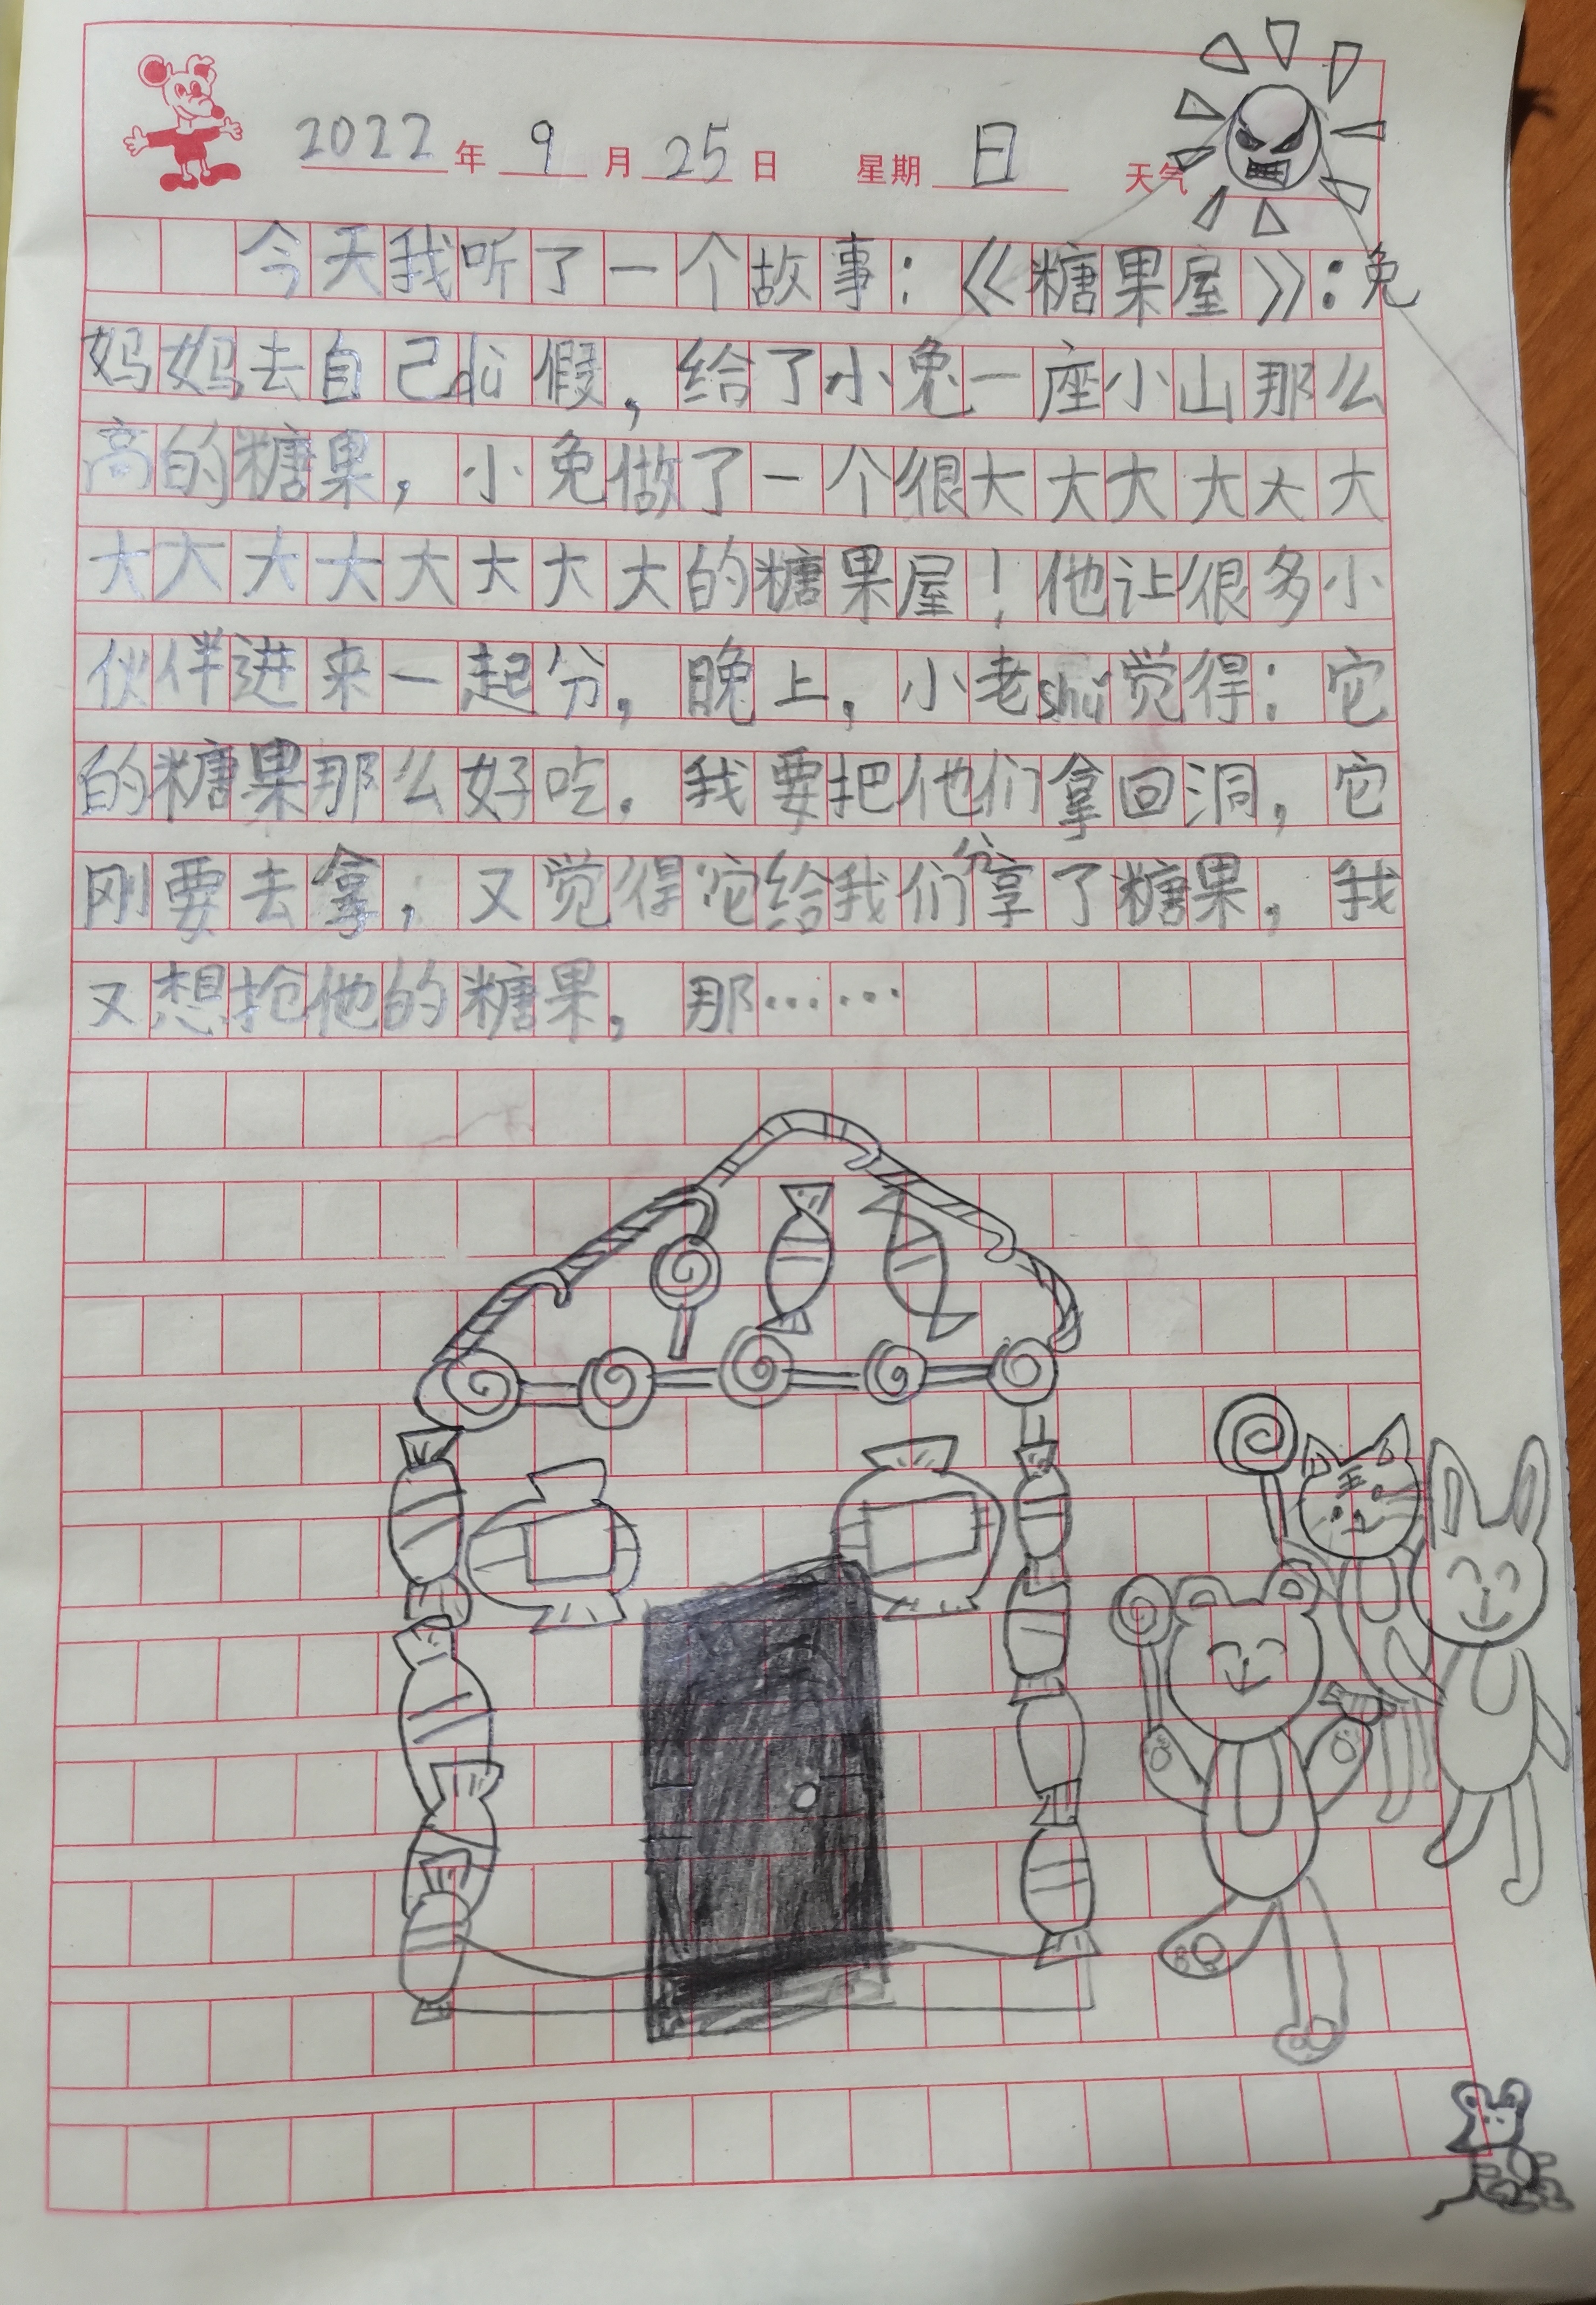 2022年9月25日 星期日 天气
今天我听了一个故事:《糖果屋》:免
妈妈去自己dù假,给了小兔一座小山那么
高的糖果,小免做了一个很大大大大大大
大大大大大大大大的糖果屋!他让很多小
伙伴进来一起分,晚上,小老shǔ觉得:它
的糖果那么好吃.我要把他们拿回洞,它
刚要去拿,又觉得它给我们分享了糖果,我
又想抢他的糖果,那……
王